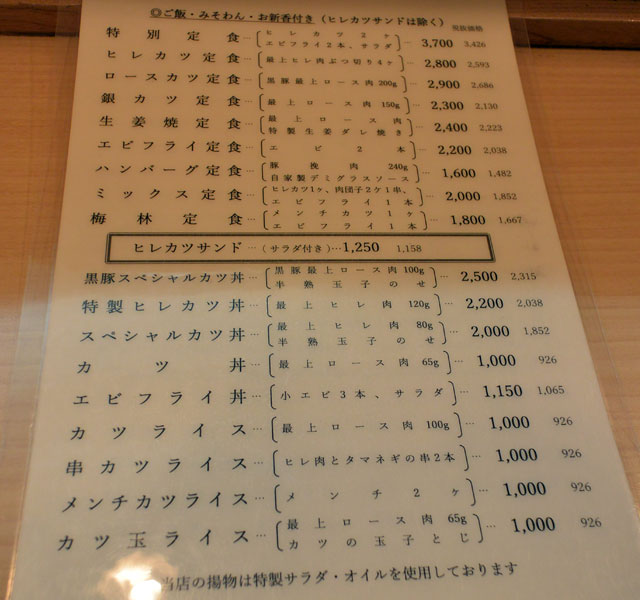 ◎ご飯・みそわん・お新香付き（ヒレカツサンドは除く） 税抜価格
特別定食…[ヒレカツ2ヶ エビフライ2本、サラダ]… 3,700 3,426
ヒレカツ定食…[最上ヒレ肉ぶつ切り4ヶ]… 2,800 2,593
ロースカツ定食…[黒豚最上ロース肉200g]… 2,900 2,686
銀カツ定食…[最上ロース肉150g]… 2,300 2,130
生姜焼定食…[最上ロース肉 特製生姜ダレ焼き]… 2,400 2,223
エビフライ定食…[エビ2本]… 2,200 2,038
ハンバーグ定食…[豚挽肉240g 自家製デミグラスソース]… 1,600 1,482
ミックス定食…[ヒレカツ1ヶ、肉団子2ケ1串、 エビフライ1本]… 2,000 1,852
梅林定食…[メンチカツ1ヶ エビフライ1本]… 1,800 1,667
ヒレカツサンド…(サラダ付き)…1,250 1,158
黒豚スペシャルカツ丼…[黒豚最上ロース肉100g 半熟玉子のせ]… 2,500 2,315
特製ヒレカツ丼…[最上ヒレ肉120g]… 2,200 2,038
スペシャルカツ丼…[最上ヒレ肉80g 半熟玉子のせ]… 2,000 1,852
カツ丼…[最上ロース肉65g]… 1,000 926
エビフライ丼…[小エビ3本、サラダ]… 1,150 1,065
カツライス…[最上ロース肉100g]… 1,000 926
串カツライス…[ヒレ肉とタマネギの串2本]… 1,000 926
メンチカツライス…[メンチ2ヶ]… 1,000 926
カツ玉ライス…[最上ロース肉65g カツの玉子とじ]… 1,000 926
当店の揚物は特製サラダ・オイルを使用しております